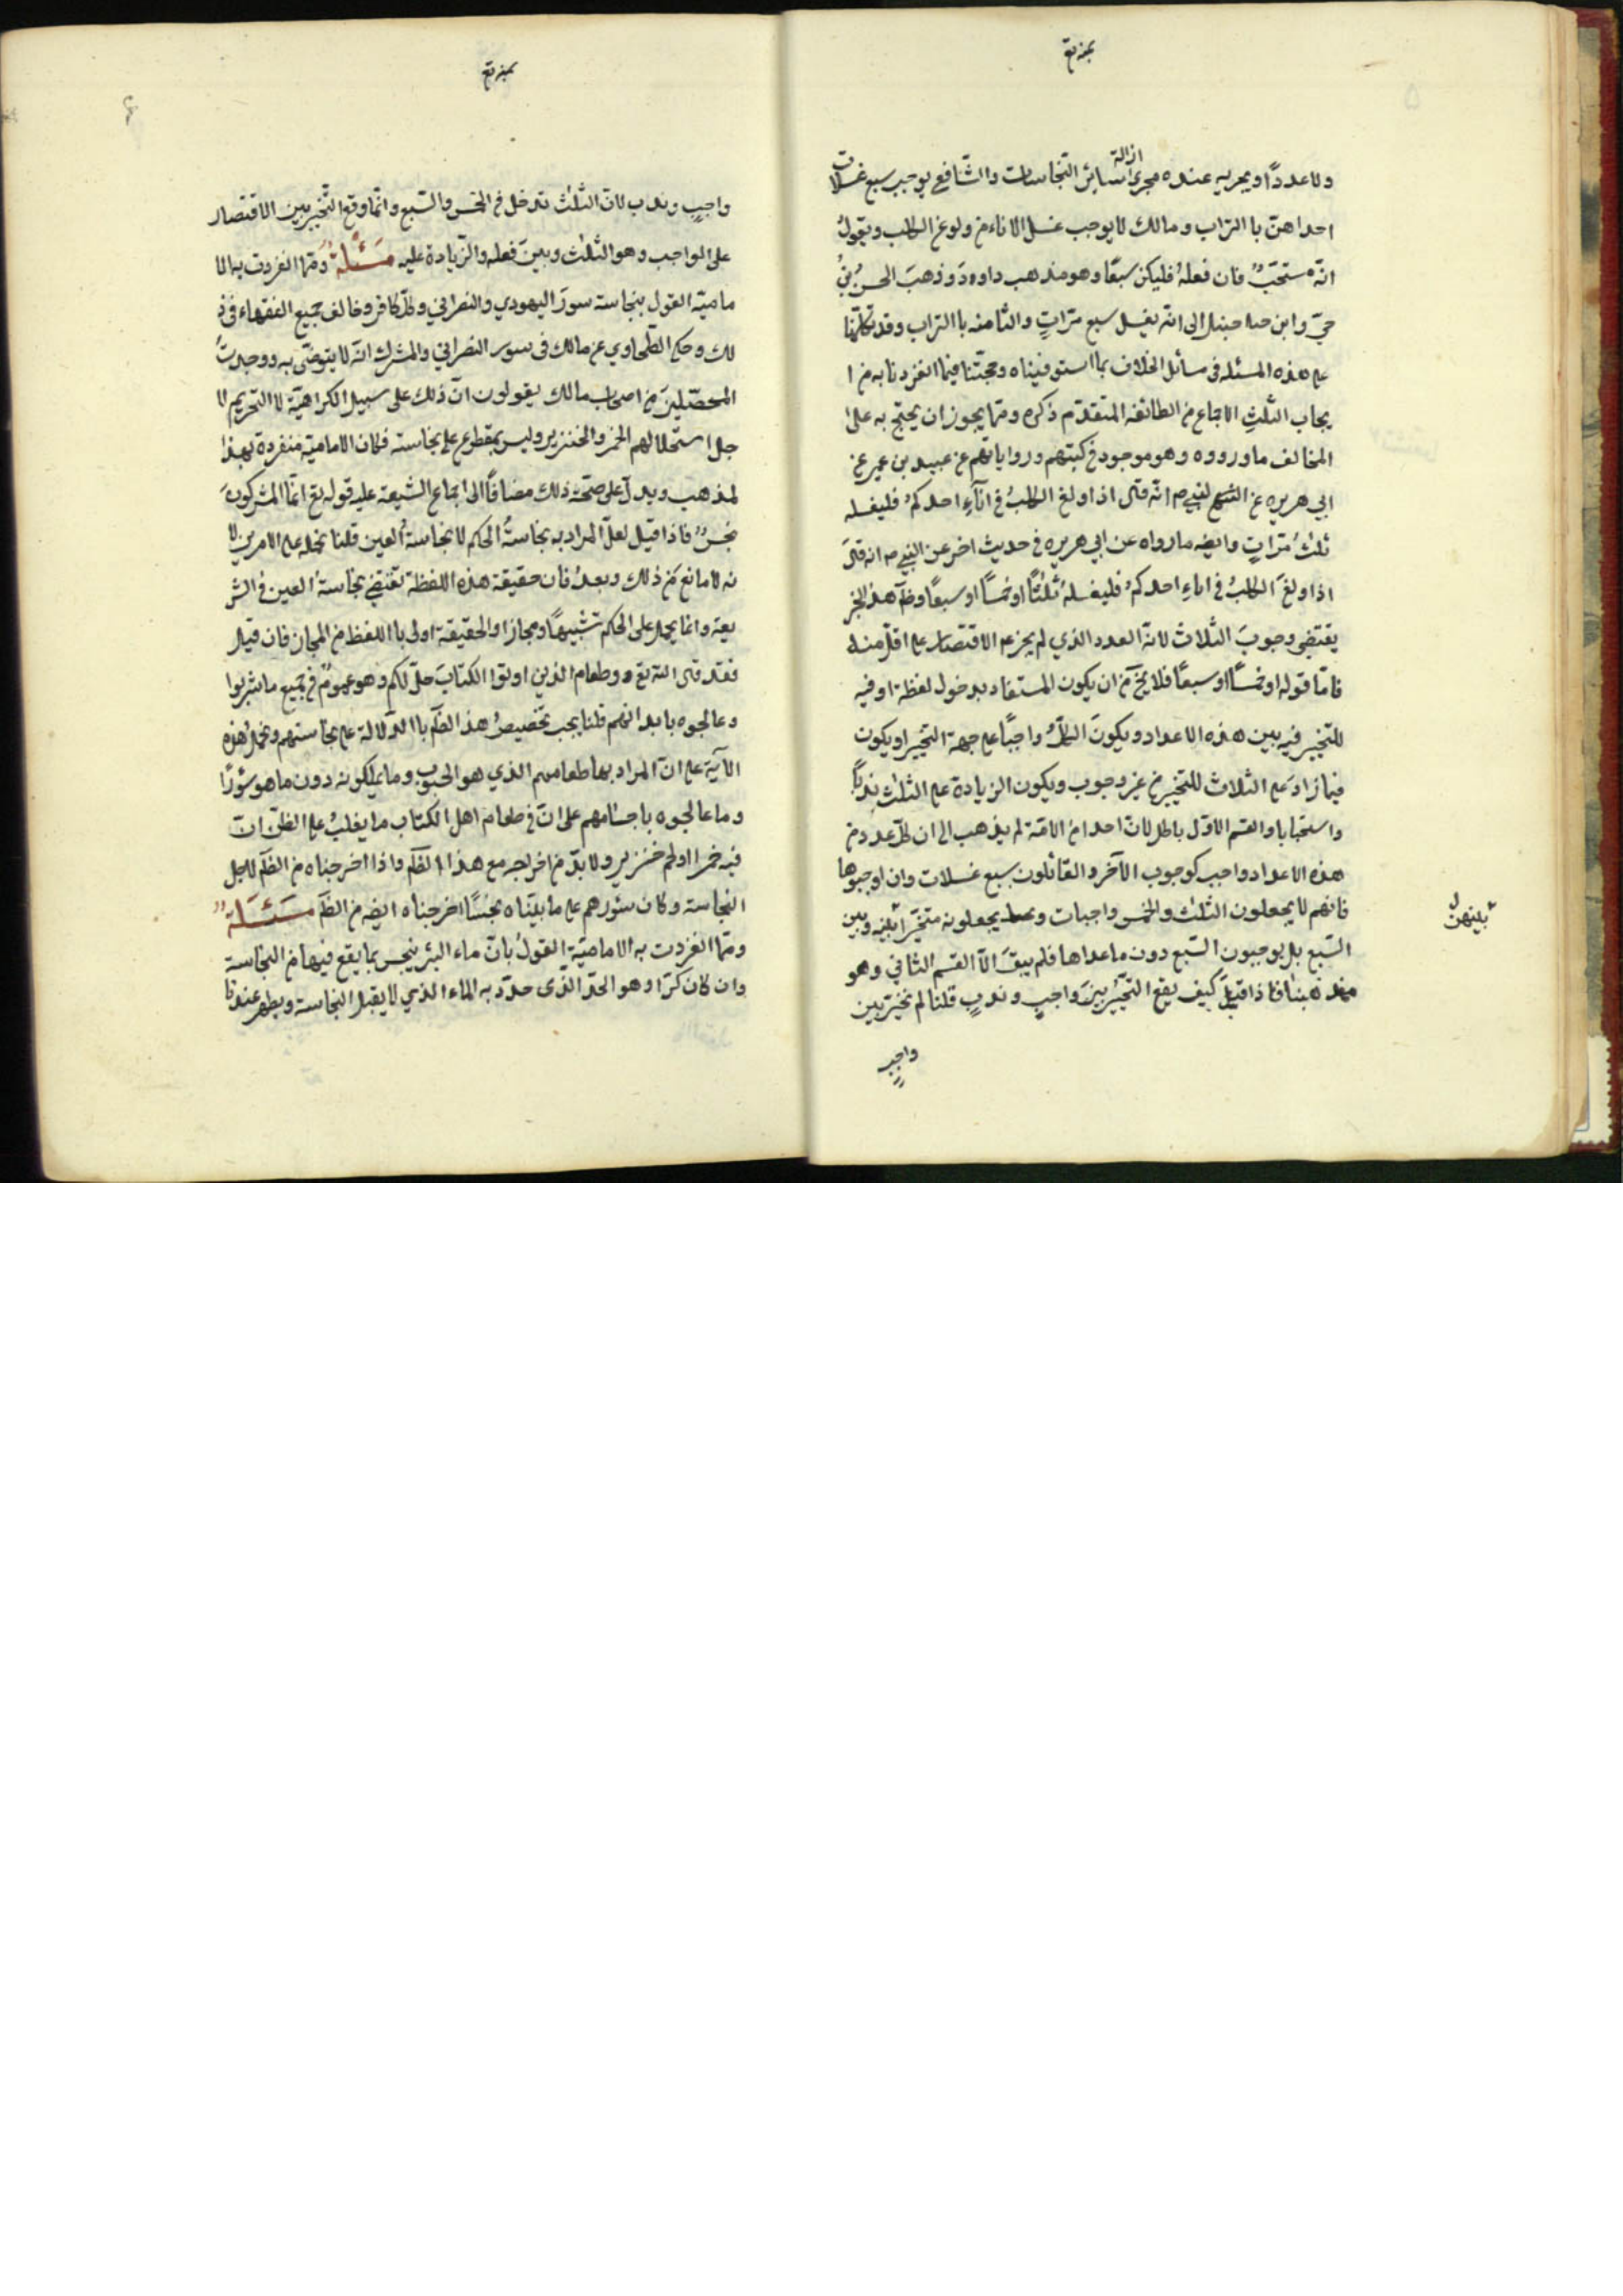 ولا عددا ويجريه عنده مجرى ازالة سائر النجاسات والشافعي يوجب سبع غسلات
احداهنّ با التراب ومالك لا يوجب غسل الاناء من ولوغ الكلب ويقول
انّه مستحبّ فان فعله فليكن سبعًا وهو مذهب داوود وذهب الحسن بن
حيّ وابن حنبل الى انّه يغسل سبع مرّاتٍ والثامنه با التراب وقد تكلّمنا
على هذه المسئله فى مسائل الخلاف بما استوفيناه وحجّتنا فيما انفردنا به من ا
يجاب الثلث الاجماع من الطائفه المتقدّم ذكره وممّا يجوز ان يحتج به على
المخالف ما رووه وهو موجود في كتبهم ورواياتهم عن عبيد بن عمير عن
ابي هريره عن النبي ص انّه قال اذا ولغ الكلب في اناء احدكم فليغسله
ثلث مرّاتٍ وايضه ما رواه عن ابي هريره في حديث اخر عن النبي ص انه قال
اذا ولغ الكلب في اناء احدكم فليغسله ثلثًا او خمسًا او سبعًا وظاهر هذا الخبر
يقتضي وجوب الثلاث لانّه العدد الذي لم يجز الاقتصار على اقلّ منه
فامّا قوله او خمسًا او سبعًا فلا يخ من ان يكون المستفاد بدخول لفظة او فيه
للتخيير فيه بين هذه الاعداد ويكون الكلّ واجبًا على جهة التخيير او يكون
فيما زاد على الثلاث للتخيير من غير وجوب ويكون الزيادة على الثلث ندبًا
واستحبابا والقسم الاوّل باطل لانّ احدا من الامّة لم يذهب الى ان كلّ عدد من
هذه الاعداد واجب كوجوب الآخر والقائلون بسبع غسلات وان اوجبوها
فانهم لا يجعلون الثلث والخمس واجبات يجعلونه متخيّرا بينه وبين
بينهنّ
السّبع بل يوجبون السّبع دون ما عداها فلم يبق الاّ القسم الثاني وهو
مذهبنا فاذا قيل كيف يقع التخيير بين واجبٍ وندبٍ قلنا لم نخيّر بين
واجبٍ
واجبٍ وندب لانّ الثلث تدخل في الخمس والسّبع وانّما وقع التّخيير بين الاقتصار
على الواجب وهو الثلث وبين فعله والزّيادة عليه مَسْئَلةٌ وممّا انفردت به الا
ماميّة القول بنجاسة سور اليهودي والنصراني وكلّ كافر وخالف جميع الفقهاء فى ذ
لك وحكى الطّحاوي عن مالك فى سور النصراني والمشرك انّه لا يتوضّى به ووجدت
المحصّلين من اصحاب مالك يقولون انّ ذلك على سبيل الكراهيّة لا التحريم لا
جل استحلالهم الخمر والخنزير وليس بمقطوع على نجاسته فكان الاماميّة منفردة بهذا
لمذهب ويدلّ على صحّة ذلك مضافًا الى اجماع الشيعة عليه قوله تع انّما المشركون
نجسٌ فاذا قيل لعلّ المراد به نجاسةُ الحكم لا نجاسةُ العين قلنا نحمله على الامرين لا
نه لا مانع من ذلك وبعدُ فان حقيقة هذه اللفظة تقتضي نجاسة العين في الشر
يعة وانما يحمل على الحكم تشبيهًا ومجازا والحقيقة اولى با اللفظ من المجاز فان قيل
فقد قال الله تع وطعام الذين اوتوا الكتاب حلّ لكم وهو عمومٌ في جميع ما شربوا
وعالجوه بابدانهم قلنا يجب تخصيصُ هذا الظاهر با الدّلالة على نجاستهم ونحمل هذه
الآية على انّ المراد بها طعامهم الذي هو الحبوب وما يملكونه دون ما هو سؤرًا
وما عالجوه باجسامهم على انّ فى طعام اهل الكتاب ما يغلب على الظنّ انّ
فيه خمرا او لحم خنزير ولا بدّ من اخراجه مع هذا الظاهر واذا اخرجناه من الظاهر لاجل
النجاسة وكان سئورهم على ما بيّنّاه نجسًا اخرجناه ايضه من الظاهر مَسْئَلةٌ
وممّا انفردت به الاماميّة القول بانّ ماء البئر ينجس بما يقع فيها من النجاسة
وان كان كرّا وهو الحدّ الّذى حدّد به الماء الذي لا يقبل النجاسة ويطهر عندنا